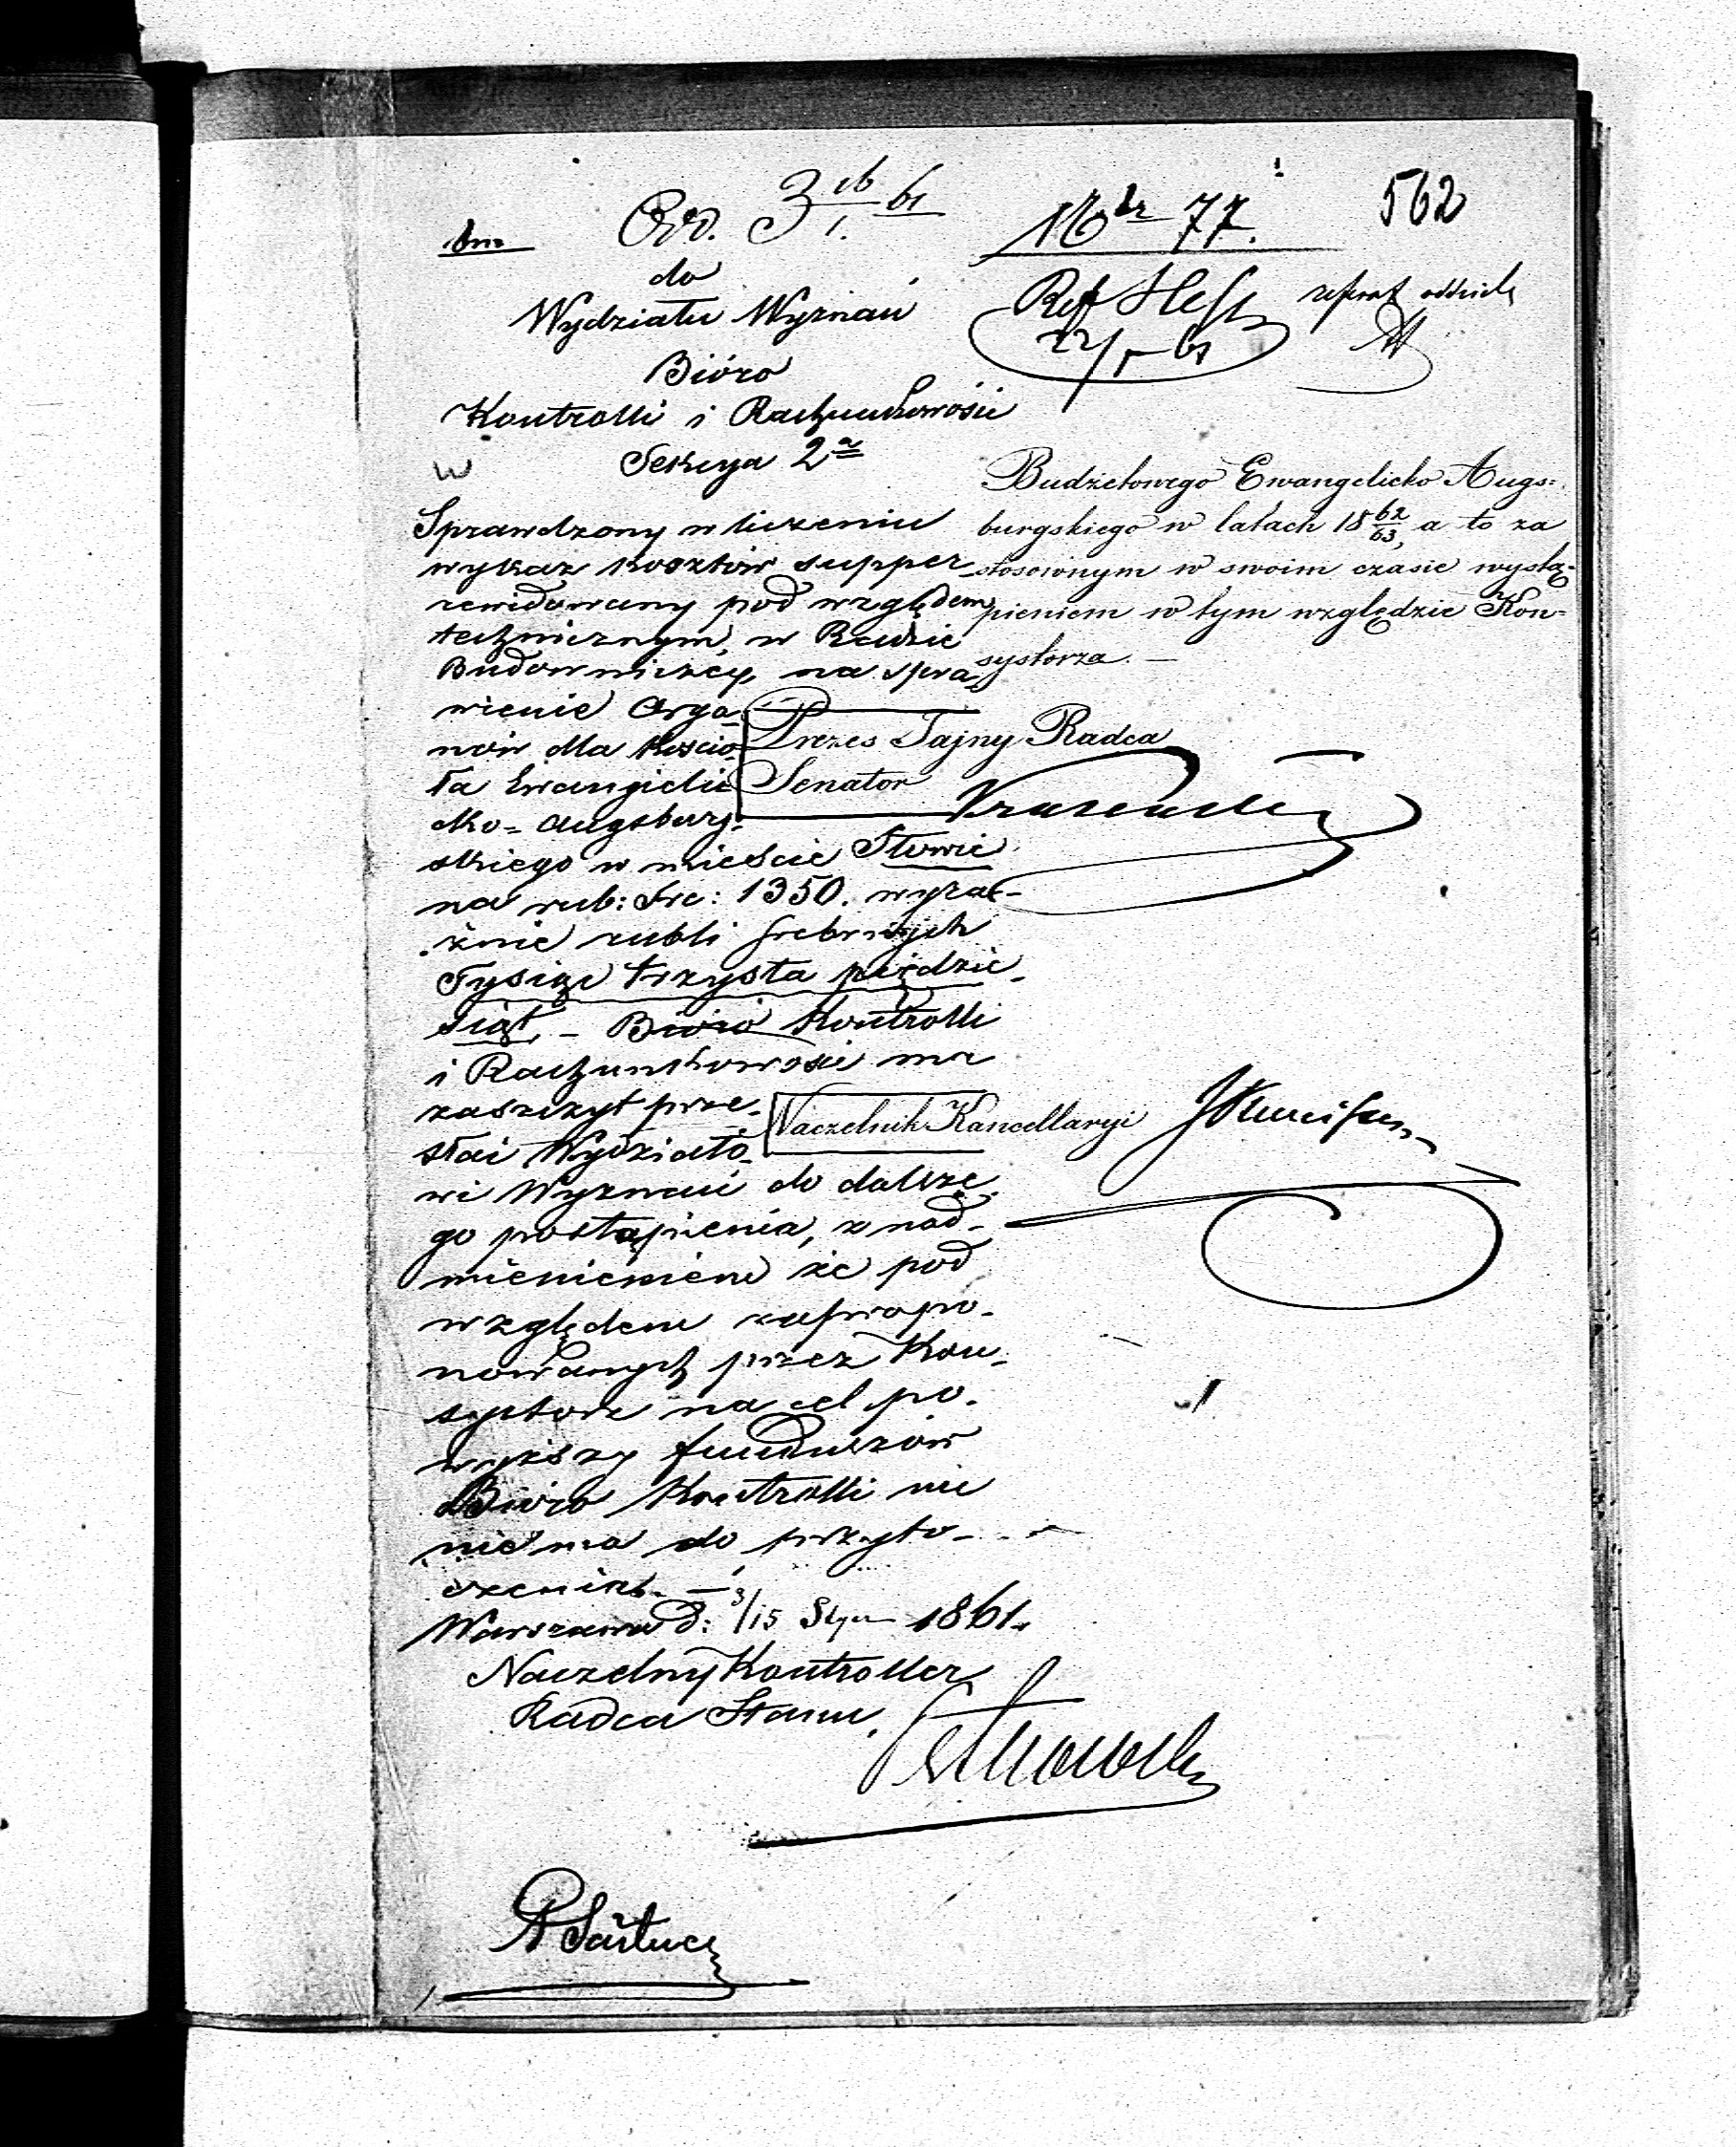 562
77.
do
Wydziału Wyznań
Bióro
Kontrolli i Rachunkowości
Sekcya 2ª
Sprawdzony w liczeniu
wykaz kosztów supper
rewidowany pod względem
technicznym, w Radzie
Budowniczej, na spra
wienie Orga
nów dla Kościo
ła Ewangielic
ko= Augsburg-
skiego w mieście
na rub: sre: 1350. wyra-
źnie rubli srebrnych
Tysiąc trzysta pięćdzie-
siąt, - Bióro Kontrolli
i Rachunkowości ma
zaszczyt prze-
słać Wydziało-
wi Wyznań do dalsze-
go postąpienia, z nad-
mienieniem że pod
względem zapropo-
nowanych przez Kon-
systorz na cel po-
wyższy funduszów
Bióro Kontrolli nic
nie ma do przyto-
czenia. -
Warszawa d: 3/15 Stycz 1861.
Naczelny Kontroller
Radca Stanu,
Budżetowego Ewangelicko Augs=
burgskiego w latach 18 62/63, a to za
stosownym w swoim czasie wystą-
pieniem w tym względzie Kon-
systorza. -
Prezes Tajny Radca
Senator
Naczelnik Kancellaryi